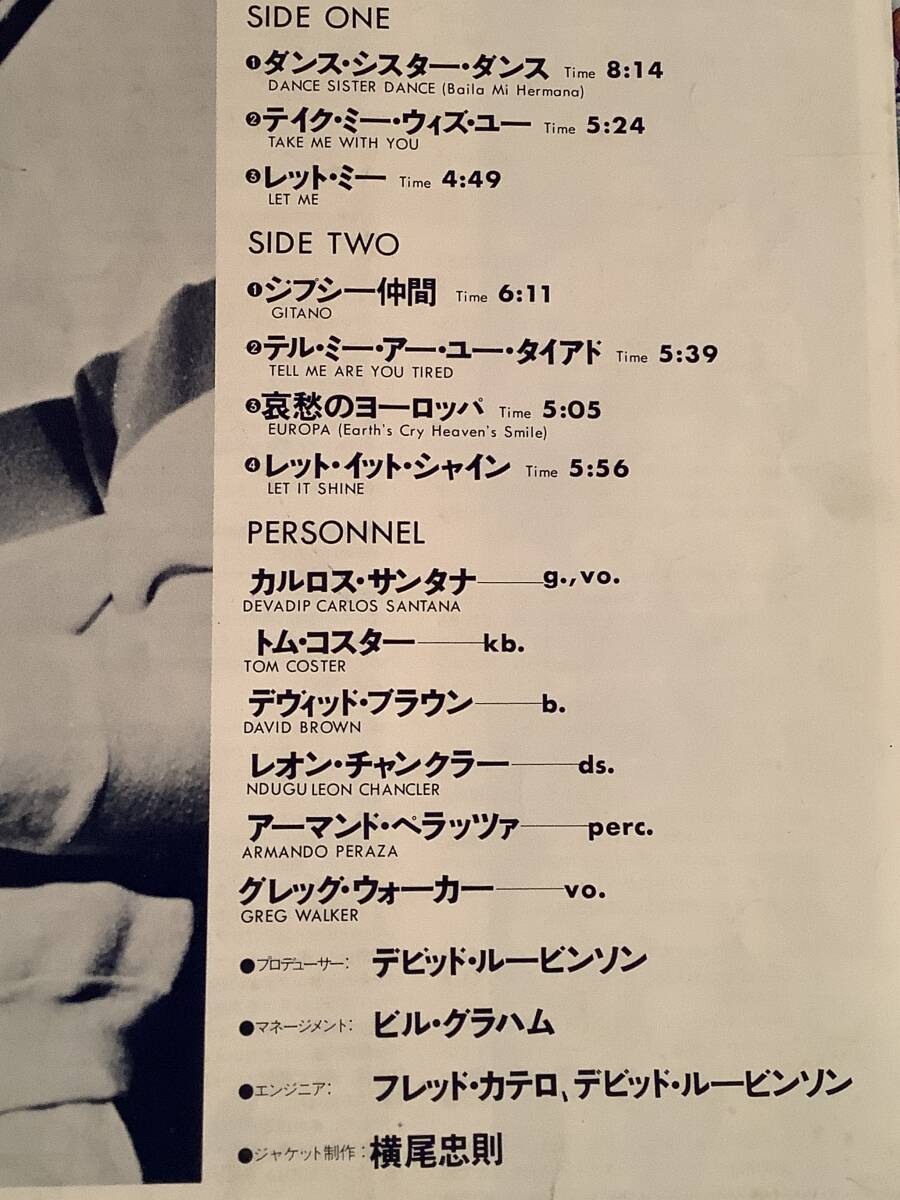 SIDE ONE
❶ダンス・シスター・ダンス Time 8:14
DANCE SISTER DANCE (Baila Mi Hermana)
❷テイク・ミー・ウィズ・ユー Time 5:24
TAKE ME WITH YOU
❸レット・ミー Time 4:49
LET ME
SIDE TWO
❶ジプシー仲間 Time 6:11
GITANO
❷テル・ミー・アー・ユー・タイアド Time 5:39
TELL ME ARE YOU TIRED
❸哀愁のヨーロッパ Time 5:05
EUROPA (Earth's Cry Heaven's Smile)
❹レット・イット・シャイン Time 5:56
LET IT SHINE
PERSONNEL
カルロス・サンタナ——g.,vo.
DEVADIP CARLOS SANTANA
トム・コスター——kb.
TOM COSTER
デヴィッド・ブラウン——b.
DAVID BROWN
レオン・チャンクラー——ds.
NDUGU LEON CHANCLER
アーマンド・ペラッツァ——perc.
ARMANDO PERAZA
グレッグ・ウォーカー——vo.
GREG WALKER
●プロデューサー: デビッド・ルービンソン
●マネージメント: ビル・グラハム
●エンジニア: フレッド・カテロ、デビッド・ルービンソン
●ジャケット制作: 横尾忠則